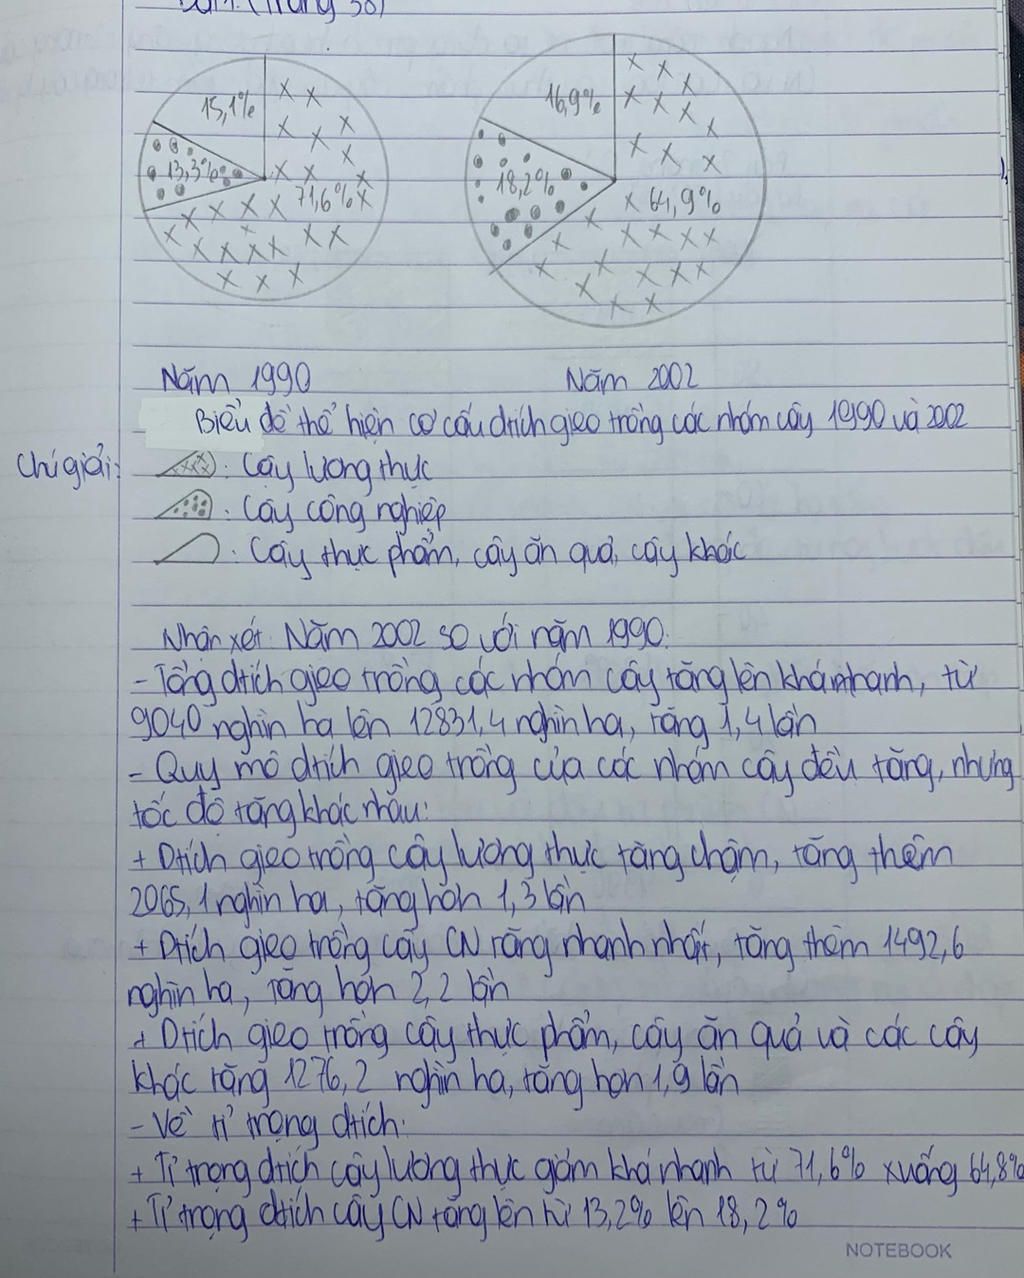 (Trang 38)
15,1%
13,3%
71,6%
16,9%
18,2%
64,9%
Năm 1990
Năm 2002
Biểu đồ thể hiện cơ cấu dtích gieo trồng các nhóm cây 1990 và 2002
Chú giải:
: Cây lương thực
: Cây công nghiệp
: Cây thực phẩm, cây ăn quả, cây khác
Nhận xét: Năm 2002 so với năm 1990:
- Tổng dtích gieo trồng các nhóm cây tăng lên khá nhanh, từ
9040 nghìn ha lên 12831,4 nghìn ha, tăng 1,4 lần
- Quy mô dtích gieo trồng của các nhóm cây đều tăng, nhưng
tốc độ tăng khác nhau:
+ Dtích gieo trồng cây lương thực tăng chậm, tăng thêm
2065,1 nghìn ha, tăng hơn 1,3 lần
+ Dtích gieo trồng cây CN tăng nhanh nhất, tăng thêm 1492,6
nghìn ha, tăng hơn 2,2 lần
+ Dtích gieo trồng cây thực phẩm, cây ăn quả và các cây
khác tăng 1276,2 nghìn ha, tăng hơn 1,9 lần
- Về tỉ trọng dtích:
+ Tỉ trọng dtích cây lương thực giảm khá nhanh từ 71,6% xuống 64,8%
+ Tỉ trọng dtích cây CN tăng lên từ 13,2% lên 18,2%
NOTEBOOK